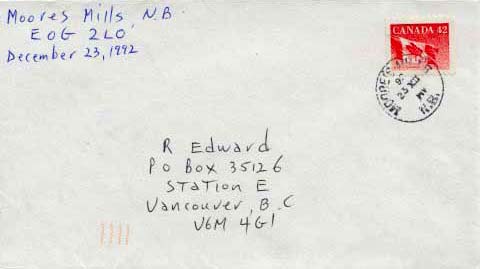 Moores Mills, N.B.
E0G 2L0
December 23, 1992
CANADA 42
MOORES
23 XII
PM
N.B.
R Edward
PO BOX 35126
STATION E
Vancouver, B.C
V6M 4G1